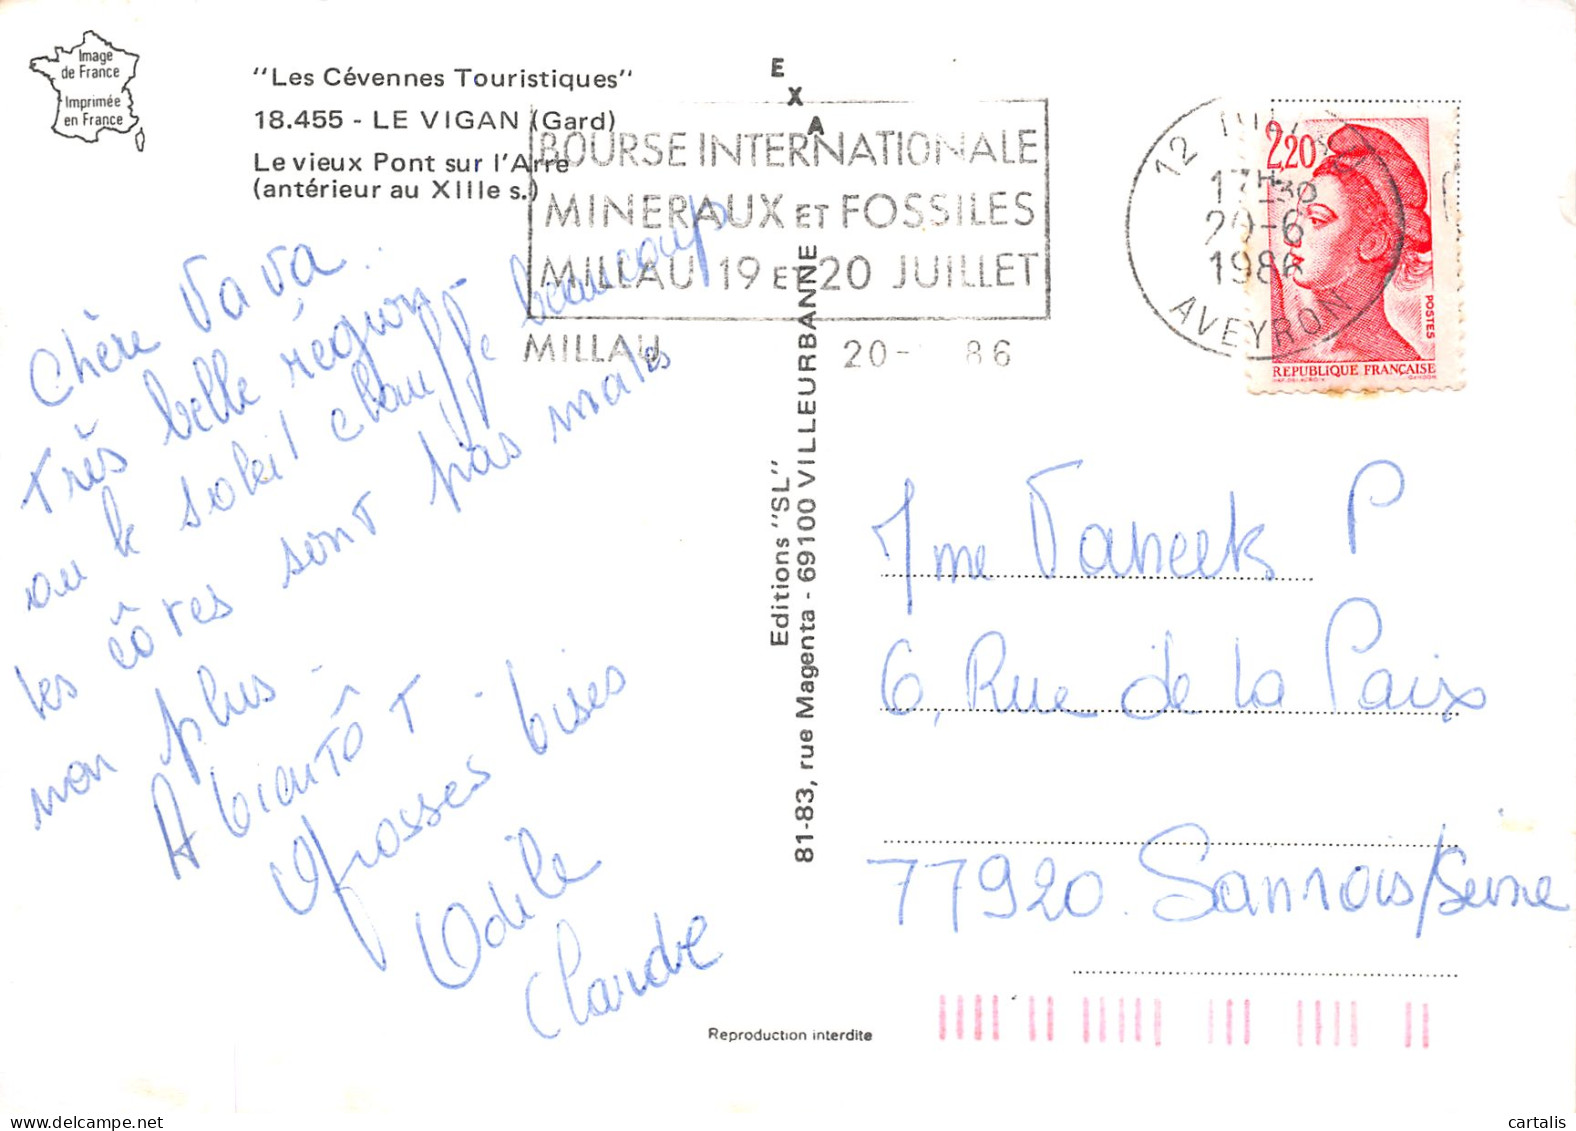 Image
de France
Imprimée
en France
"Les Cévennes Touristiques"
18.455 - LE VIGAN (Gard)
Le vieux Pont sur l'Arre
(antérieur au XIIIe s.)
EXA
BOURSE INTERNATIONALE
MINERAUX ET FOSSILES
MILLAU 19 ET 20 JUILLET
MILLAU 20- 86
12 MILLAU
17H30
20-6
1986
AVEYRON
2,20
POSTES
REPUBLIQUE FRANÇAISE
Chère Vava
Très belle région -
ou le soleil chauffe beaucoup
les côtes sont pas males
non plus -
A bientôt -
Grosses bises
Odile
Claude
Editions "SL"
81-83, rue Magenta - 69100 VILLEURBANNE
Mme Vaneck P
6, Rue de la Paix
77920 Samois/Seine
Reproduction interdite
cartalis